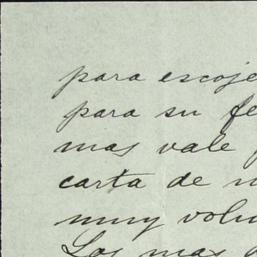 para escoje
para su fe
mas vale
carta de
muy volu
Los mas